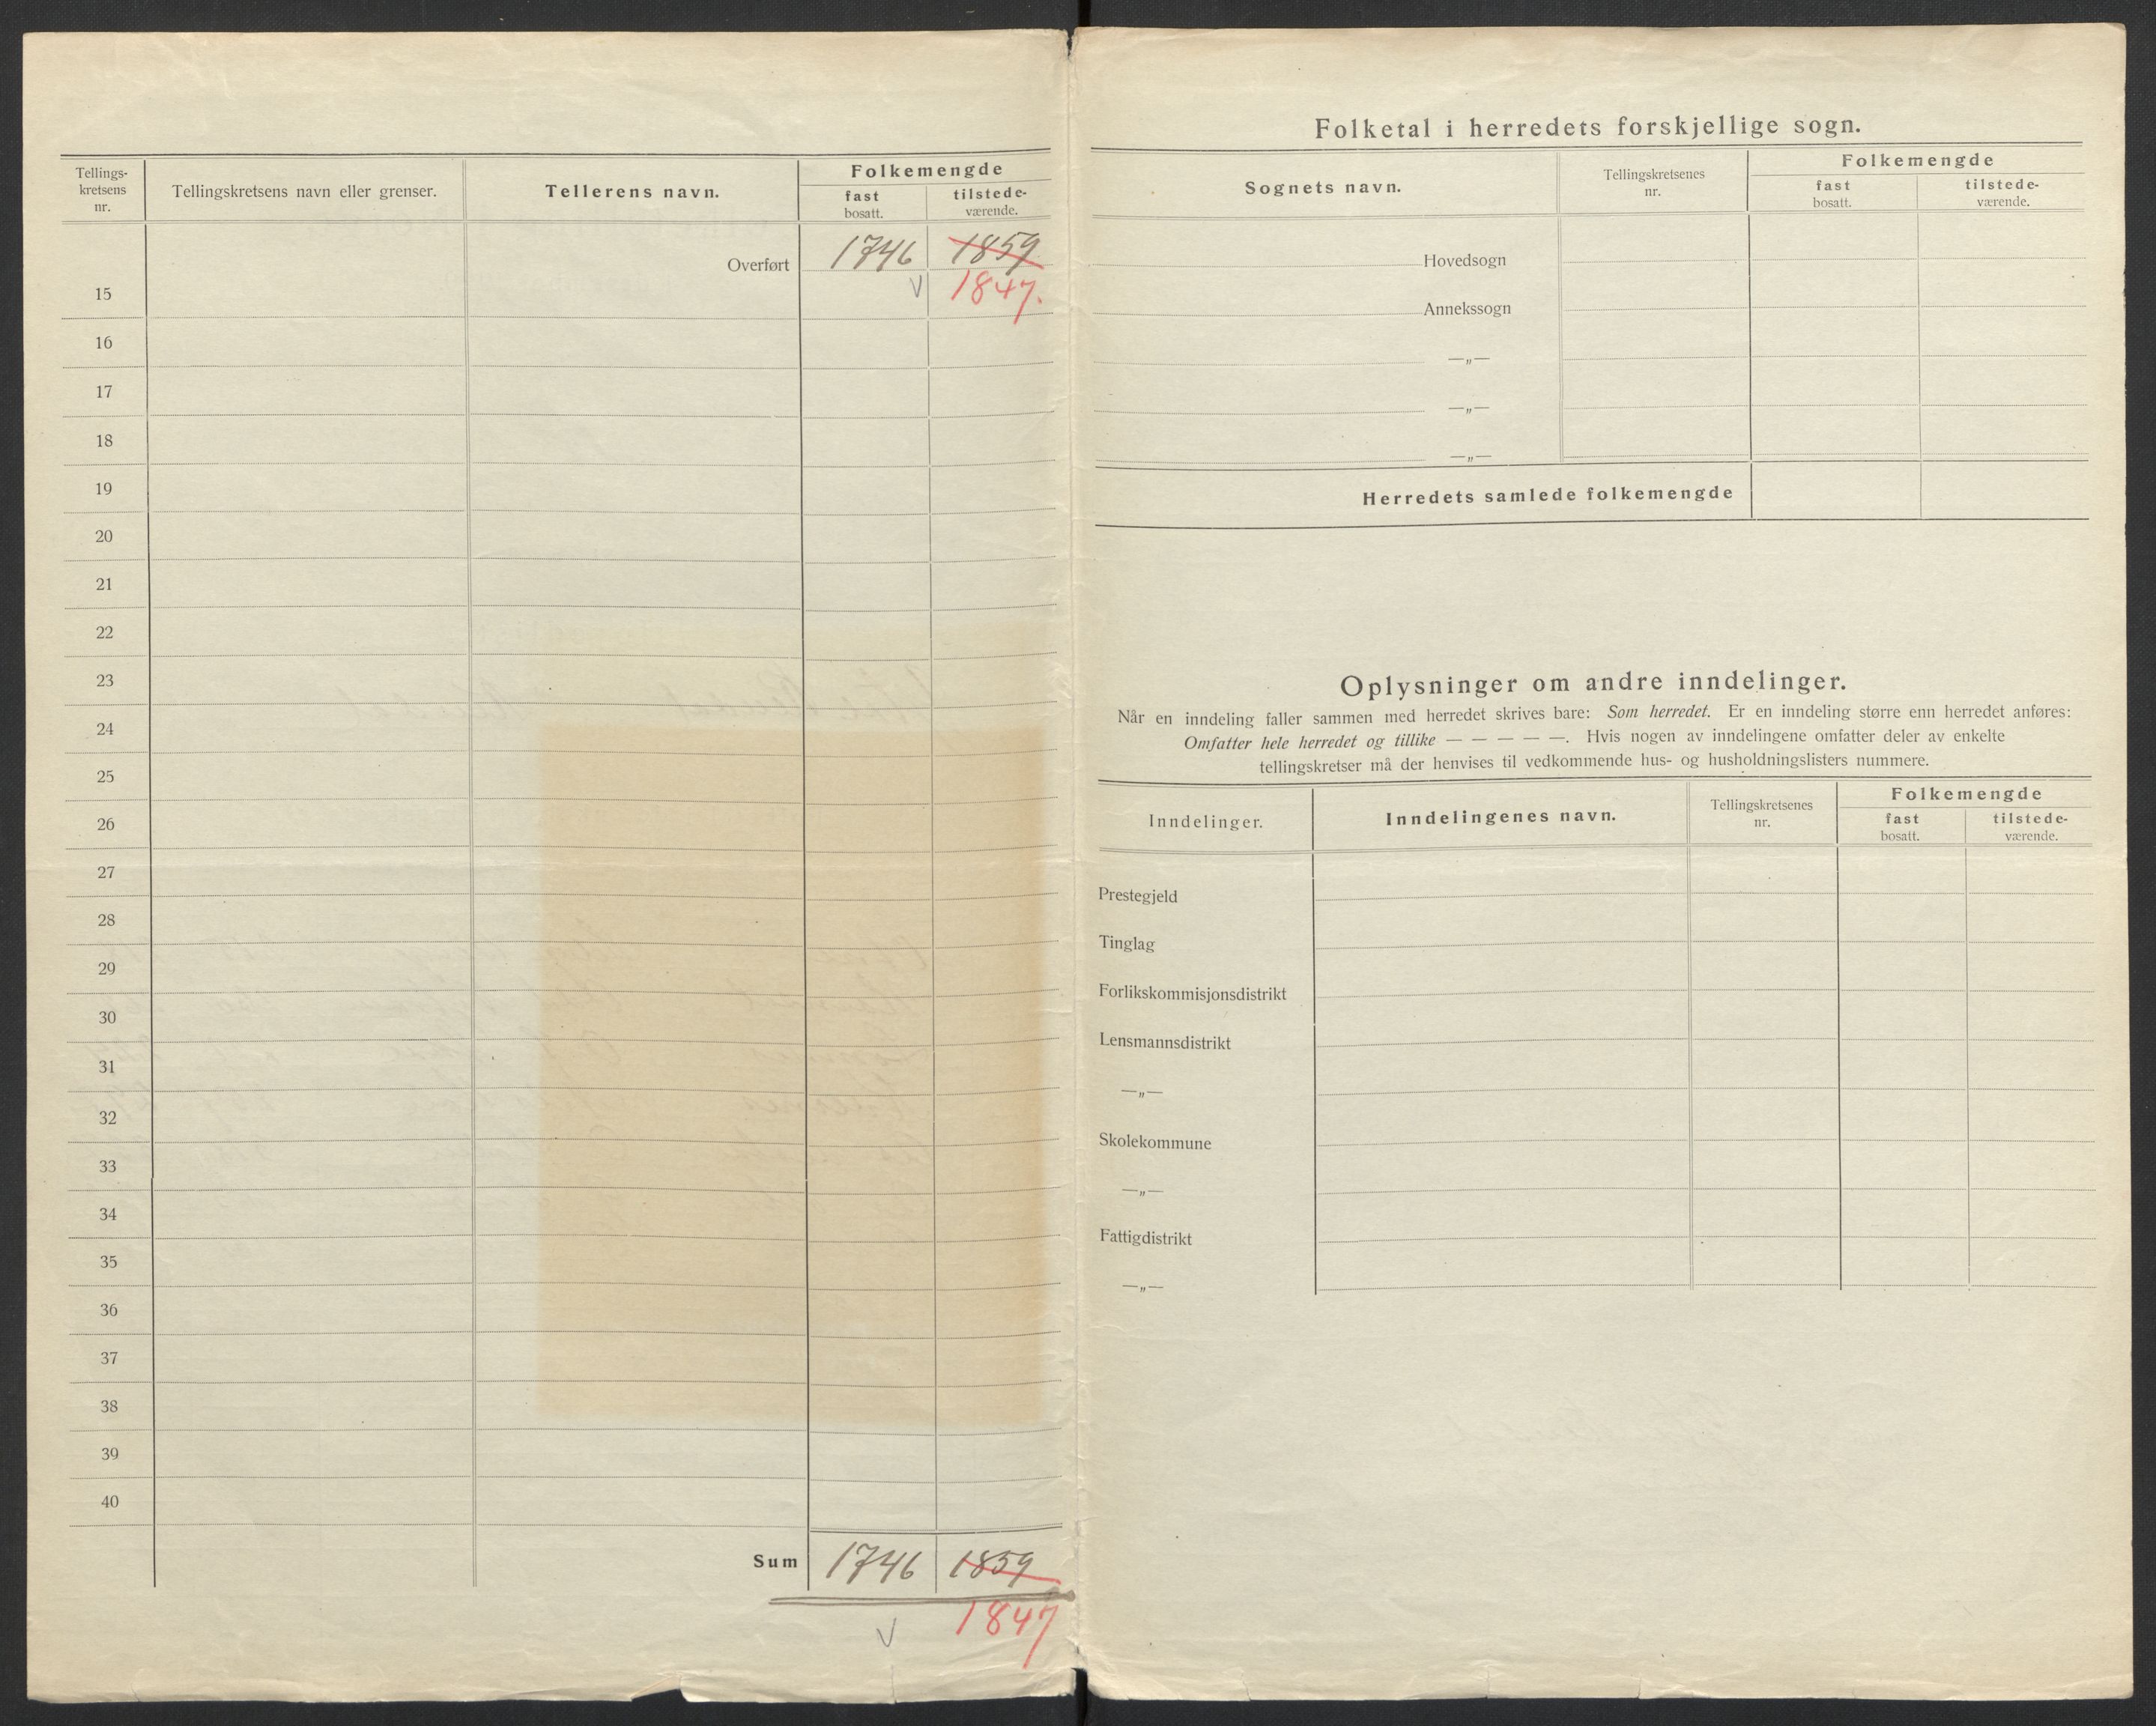 Tellings-
kretsens
nr.
Tellingskretsens navn eller grenser.
Tellerens navn.
Folkemengde
fast
bosatt.
tilstede-
værende.
Overført 1746 1859
15 V 1847.
16
17
18
19
20
21
22
23
24
25
26
27
28
29
30
31
32
33
34
35
36
37
38
39
40
Sum 1746 1859
V 1847
Folketal i herredets forskjellige sogn.
Sognets navn.
Tellingskretsenes
nr.
Folkemengde
fast
bosatt.
tilstede-
værende.
Hovedsogn
Annekssogn
—„—
—„—
—„—
Herredets samlede folkemengde
Oplysninger om andre inndelinger.
Når en inndeling faller sammen med herredet skrives bare: Som herredet. Er en inndeling større enn herredet anføres:
Omfatter hele herredet og tillike — — — — —. Hvis nogen av inndelingene omfatter deler av enkelte
tellingskretser må der henvises til vedkommende hus- og husholdningslisters nummere.
Inndelinger.
Inndelingenes navn.
Tellingskretsenes
nr.
Folkemengde
fast
bosatt.
tilstede-
værende.
Prestegjeld
Tinglag
Forlikskommisjonsdistrikt
Lensmannsdistrikt
—„—
Skolekommune
—„—
Fattigdistrikt
—„—